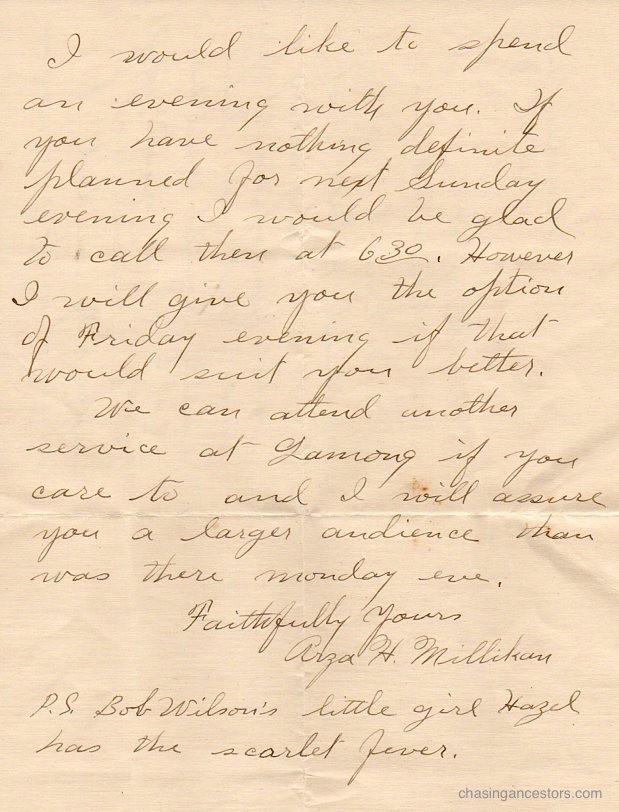 I would like to spend
an evening with you. If
you have nothing definite
planned for next Sunday
evening I would be glad
to call then at 6 30. However
I will give you the option
of Friday evening if that
would suit you better.
We can attend another
service at Lamong if you
care to and I will assure
you a larger audience than
was there monday eve.
Faithfully Yours
Arza H. Millikan
P.S. Bob Wilson's little girl Hazel
has the scarlet fever.
chasingancestors.com